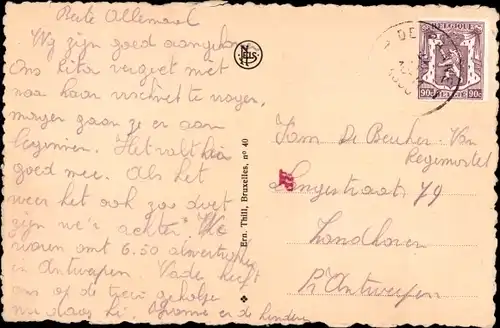 Beste Allemaal
Wij zijn goed aangekomen
Ons Rita vergeet niet
naar haar te vragen,
morgen gaan ze er aan
beginnen. Het valt hier
goed mee. Als het
weer het ook zoo doet
zijn we'r achter. We
waren omt 6.50
in Antwerpen. Vake heeft
ons op de trein geholpen
nu daag hé. en de kinderen
NELS
Ern. Thill, Bruxelles, n° 40
BELGIQUE
90c 90c
BELGIE
Fam De Beucker-Van
Regemortel
Langestraat 79
Zandhoven
P. Antwerpen